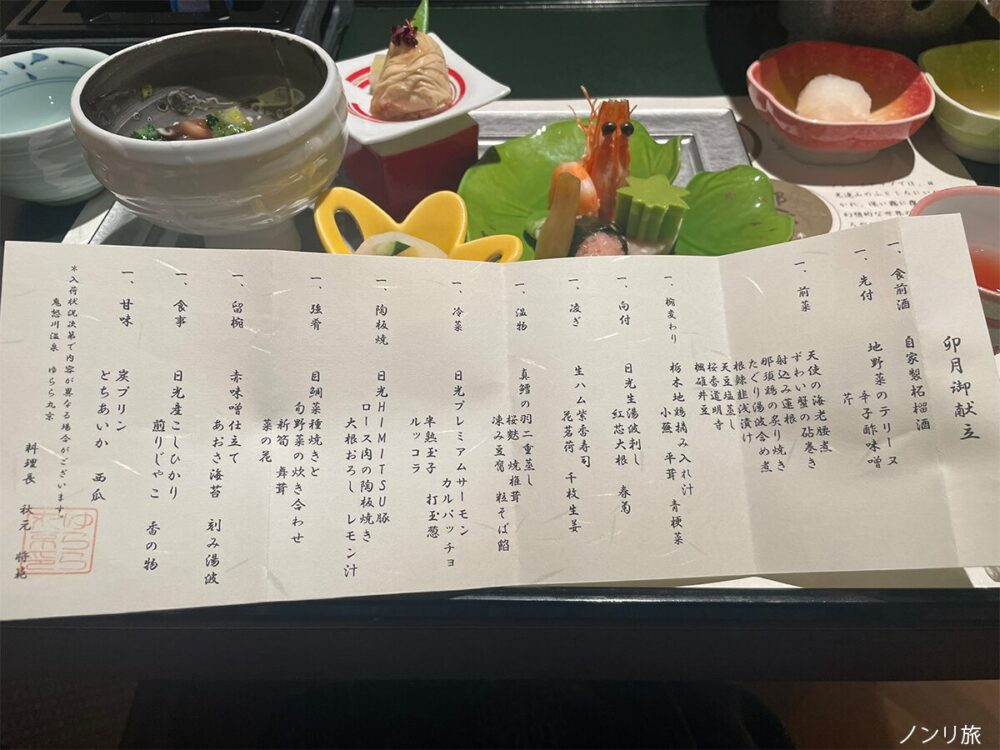 卯月御献立
一、食前酒
自家製柘榴酒
一、先付
地野菜のテリーヌ
辛子酢味噌
芹
一、前菜
天使の海老腰煮
ずわい蟹の砧巻き
射込み蓮根
那須鶏の炙り焼き
たぐり湯波含め煮
根辣韮浅漬け
天豆塩蒸し
桜香道明寺
楓碓井豆
一、椀変わり
栃木地鶏摘み入れ汁
小蕪 平茸 青梗菜
一、向付
日光生湯波刺し
紅芯大根 春菊
一、凌ぎ
生ハム紫香寿司
花茗荷 千枚生姜
一、温物
真鱈の羽二重蒸し
桜麩 焼椎茸
凍み豆腐 粒そば餡
一、冷菜
日光プレミアムサーモン
カルパッチョ
半熟玉子 打玉葱
ルッコラ
一、陶板焼
日光HIMITSU豚
ロース肉の陶板焼き
大根おろし レモン汁
一、強肴
目鯛菜種焼きと
旬野菜の炊き合わせ
新筍 舞茸
菜の花
一、留椀
赤味噌仕立て
あおさ海苔 刻み湯波
一、食事
日光産こしひかり
煎りじゃこ 香の物
一、甘味
炭プリン
とちあいか 西瓜
＊入荷状況次第で内容が異なる場合がございます。
鬼怒川温泉 ゆらら九京
料理長 秋元 将範
ノンリ旅